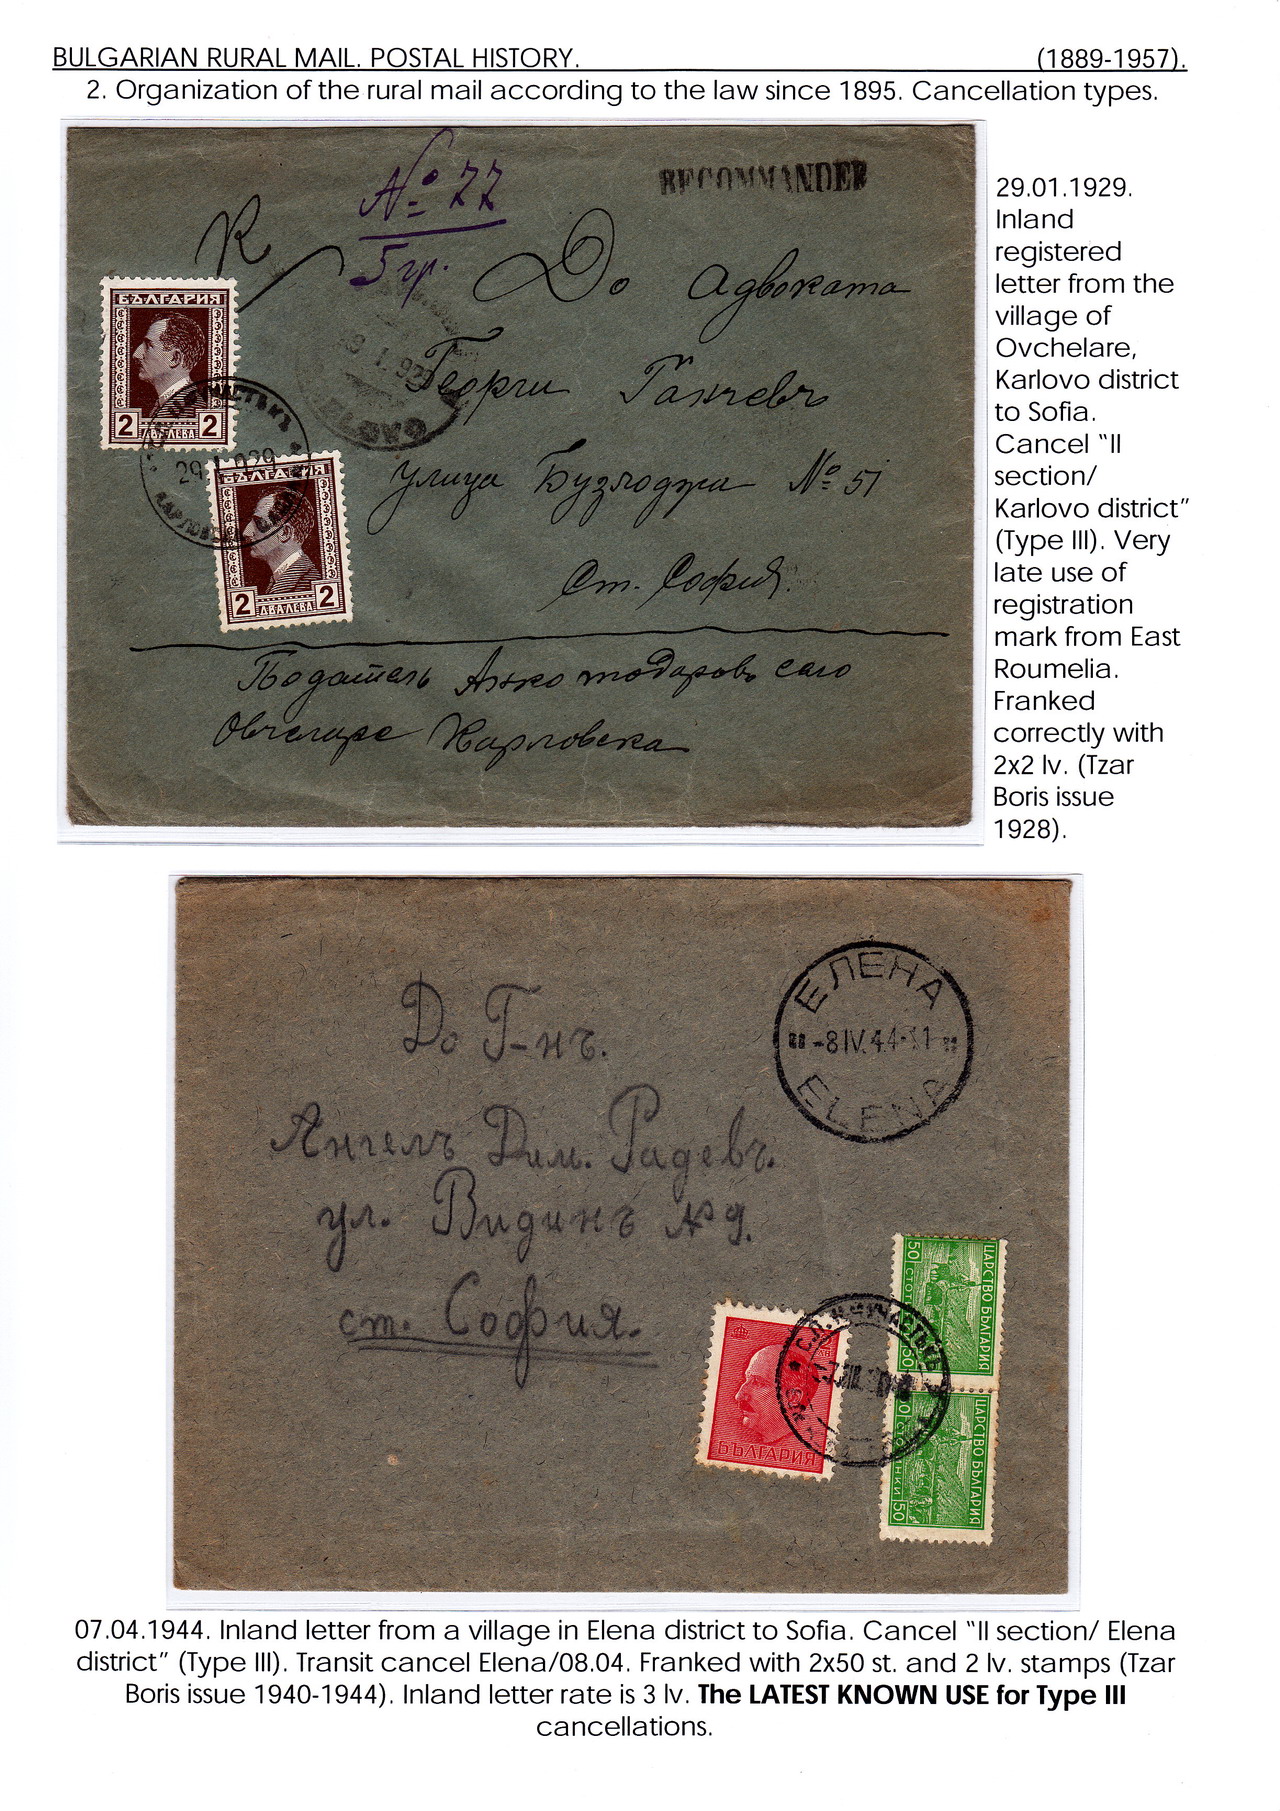 BULGARIAN RURAL MAIL. POSTAL HISTORY. (1889-1957).
2. Organization of the rural mail according to the law since 1895. Cancellation types.
№ 77
5 гр.
RECOMMANDER
R
До Адвоката
Георги Ганчевъ
улица Бузлоджа № 51
Ст. София.
Подателъ Анко Тодоровъ село
Овчеларе Карловска
БЪЛГАРИЯ
2 ДВА ЛЕВА 2
29.I.929
БЪЛГАРИЯ
2 ДВА ЛЕВА 2
I.929
29.01.1929.
Inland
registered
letter from the
village of
Ovchelare,
Karlovo district
to Sofia.
Cancel “II
section/
Karlovo district”
(Type III). Very
late use of
registration
mark from East
Roumelia.
Franked
correctly with
2x2 lv. (Tzar
Boris issue
1928).
ЕЛЕНА
-8 IV.44-
ELENA
До Г-нъ.
Ангелъ Дим. Радевъ.
ул. Видинъ № 9.
ст. София.
БЪЛГАРИЯ
ЦАРСТВО БЪЛГАРИЯ
50 50
ЦАРСТВО БЪЛГАРИЯ
СТОТИНКИ 50
07.04.1944. Inland letter from a village in Elena district to Sofia. Cancel “II section/ Elena
district” (Type III). Transit cancel Elena/08.04. Franked with 2x50 st. and 2 lv. stamps (Tzar
Boris issue 1940-1944). Inland letter rate is 3 lv. The LATEST KNOWN USE for Type III
cancellations.